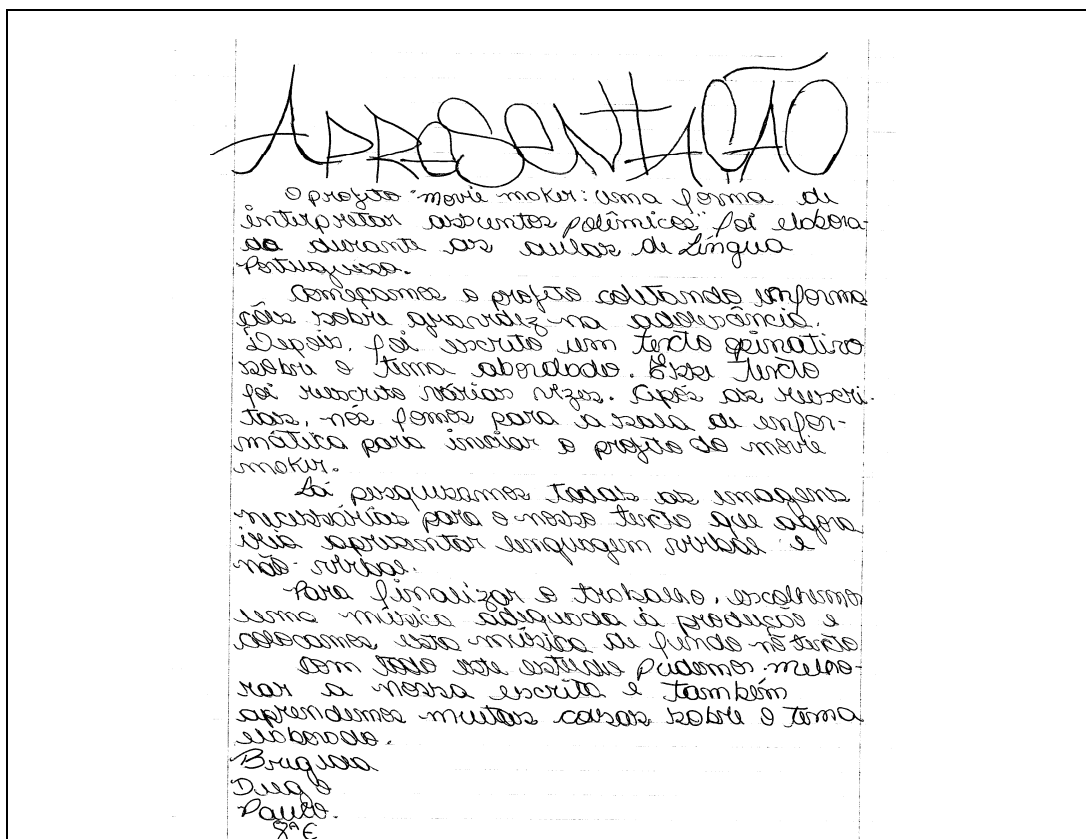 APRESENTAÇÃO
O projeto "movie maker: uma forma de
interpretar assuntos polêmicos" foi elabora-
do durante as aulas de Língua
Portuguesa.
Começamos o projeto coletando informa
ções sobre gravidez na adolescência.
Depois, foi escrito um texto opinativo
sobre o tema abordado. Esse texto
foi reescrito várias vezes. Após as reescri-
tas, nós fomos para a sala de infor-
mática para iniciar o projeto do movie
maker.
Lá pesquisamos todas as imagens
necessárias para o nosso texto que agora
iria apresentar linguagem verbal e
não-verbal.
Para finalizar o trabalho, escolhemos
uma música adequada à produção e
colocamos esta música de fundo no texto
Com todo este estudo pudemos melho-
rar a nossa escrita e também
aprendemos muitas coisas sobre o tema
elaborado.
Brigida
Diego
Paulo.
8ª E